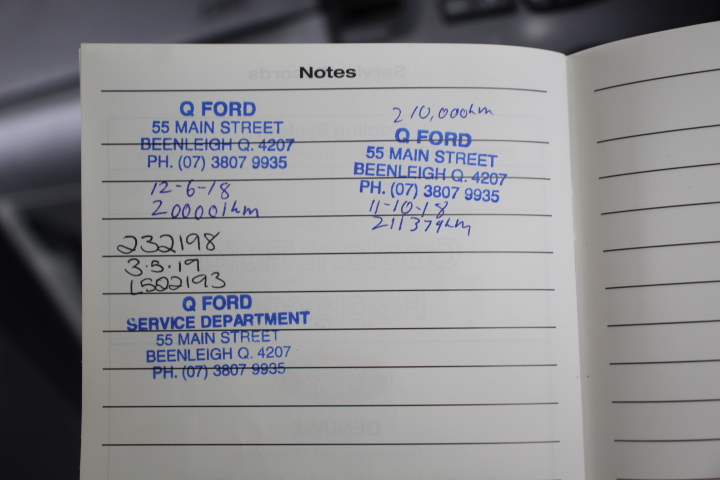 Notes
Q FORD
55 MAIN STREET
BEENLEIGH Q. 4207
PH. (07) 3807 9935
12-6-18
200001km
210,000km
Q FORD
55 MAIN STREET
BEENLEIGH Q. 4207
PH. (07) 3807 9935
11-10-18
211379km
232198
3.5.19
L502193
Q FORD
SERVICE DEPARTMENT
55 MAIN STREET
BEENLEIGH Q. 4207
PH. (07) 3807 9935